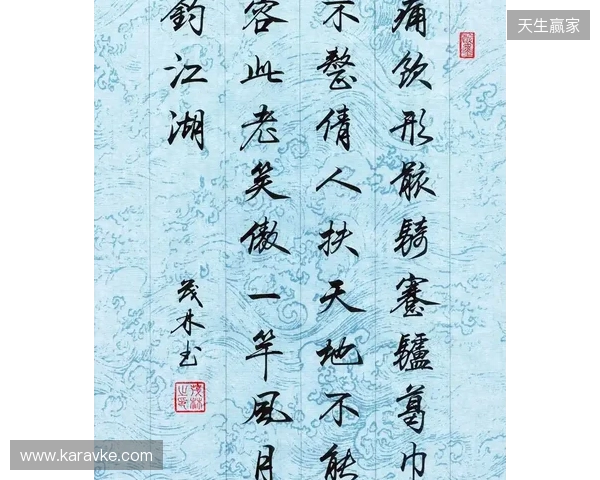 天生赢家
痛飲形骸騎蹇驢葛巾
不整倩人扶天地不能
容此老笑傲一竿風月
釣江湖
茂林书
www.karavke.com